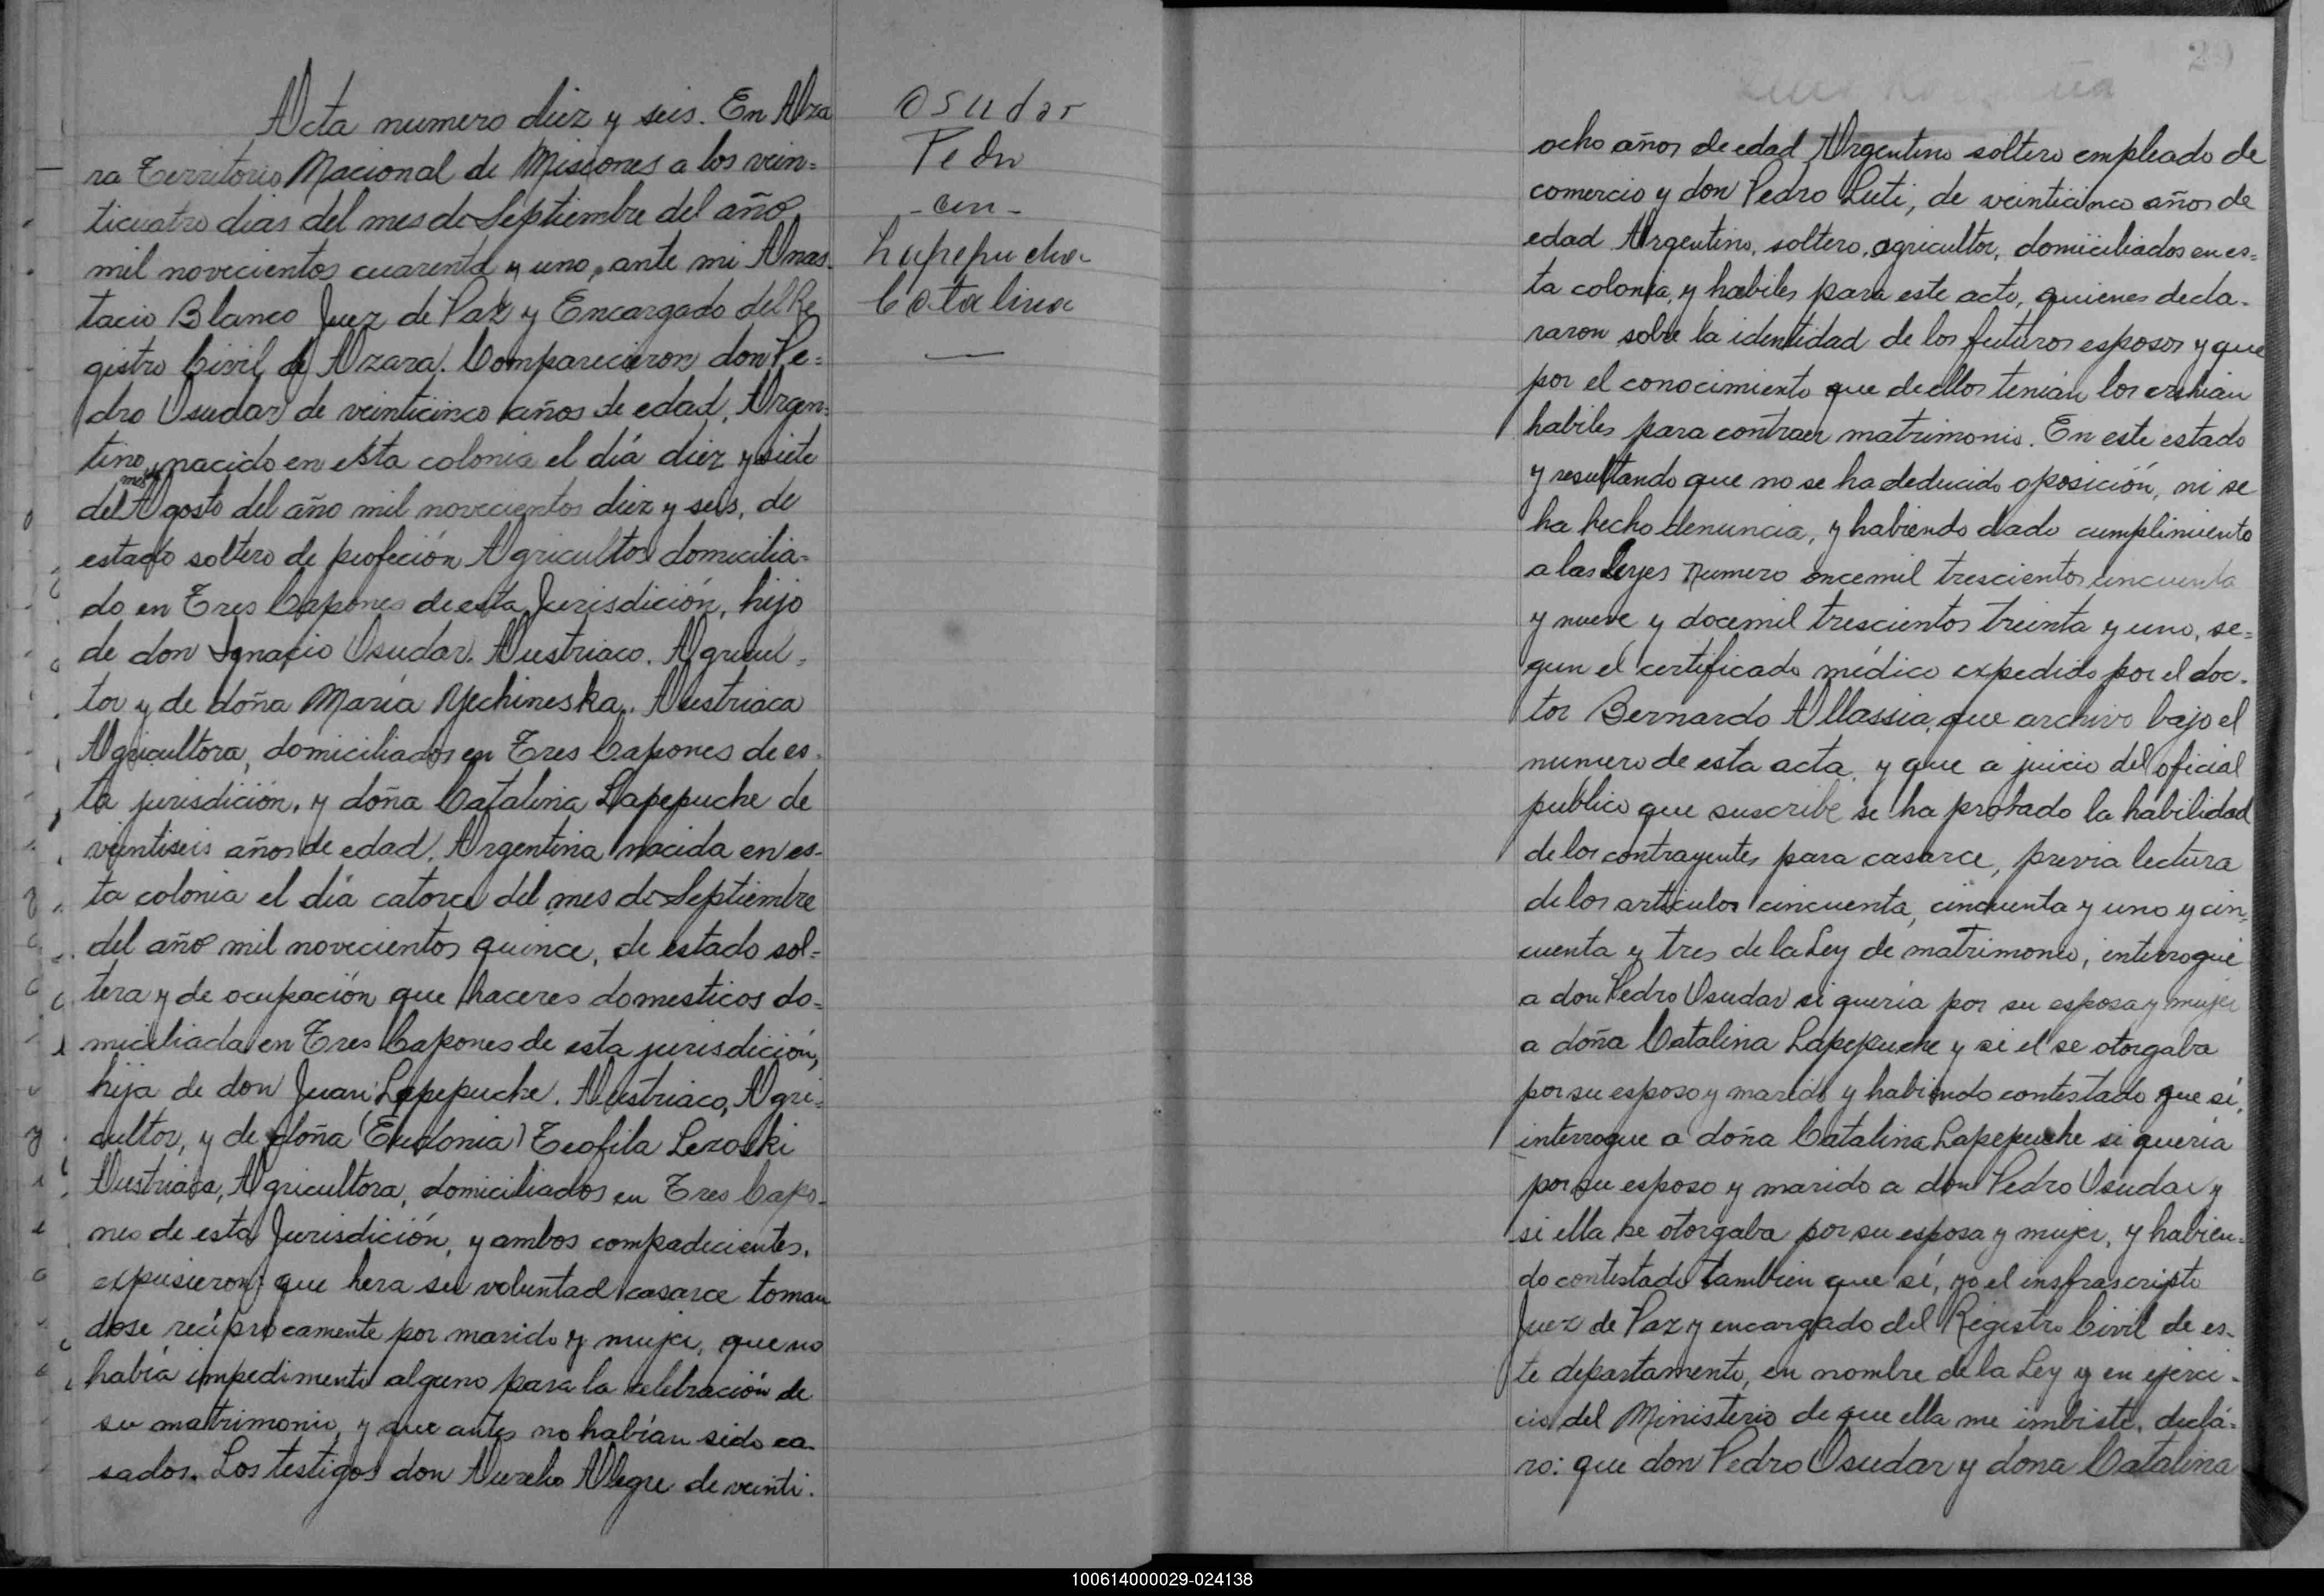 Acta numero diez y seis. En Aza
ra Territorio Nacional de Misiones a los vein=
ticuatro dias del mes de Septiembre del año
mil novecientos cuarenta y uno, ante mi Anas.
tacio Blanco Juez de Paz y Encargado del Re
gistro Civil de Azara. Comparecieron don Pe=
dro Osudar de veinticinco años de edad, Argen=
tino, nacido en esta colonia el día diez y siete
mes
del Agosto del año mil novecientos diez y seis, de
estado soltero de profeción Agricultor domicilia=
do en Tres Capones de esta Jurisdición, hijo
de don Ignacio Osudar. Austriaco. Agricul=
tor y de doña María Yechineska. Austriaca
Agricultora, domiciliados en Tres Capones de es.
ta jurisdición. y doña Catalina Lapepuche de
veintiseis años de edad. Argentina nacida en es-
ta colonia el día catorce del mes de Septiembre
del año mil novecientos quince, de estado sol=
tera y de ocupación que haceres domesticos do=
miciliada en Tres Capones de esta jurisdición,
hija de don Juan Lepepuche. Austriaco, Agri=
cultor, y de doña (Eudonia) Teofila Lezoski
Austriaca, Agricultora, domiciliados en Tres Capo=
nes de esta Jurisdición, y ambos compadecientes.
expusieron: que hera su voluntad casarce toman
dose recíprocamente por marido y mujer, que no
había impedimento alguno para la celebración de
su matrimonio, y que antes no habían sido ca-
sados. Los testigos don Aurelio Alegre de veinti.
Osudar
Pedro
-con-
Lupepuche
Catalina
29
ocho años de edad Argentino soltero empleado de
comercio y don Pedro Luti, de veinticinco años de
edad Argentino, soltero, agricultor, domiciliados en es=
ta colonia, y habiles para este acto, quienes decla-
raron sobre la identidad de los futuros esposos y que
por el conocimiento que de ellos tenian los crehian
habiles para contraer matrimonio. En este estado
y resultando que no se ha deducido oposición, ni se
ha hecho denuncia, y habiendo dado cumplimiento
a las leyes numero oncemil trescientos cincuenta
y nueve y docemil trescientos treinta y uno, se=
gun el certificado médico expedido por el doc-
tor Bernardo Allassia, que archivo bajo el
numero de esta acta, y que a juicio del oficial
publico que suscribe se ha probado la habilidad
de los contrayentes para casarce, previa lectura
de los articulos cincuenta, cincuenta y uno y cin-
cuenta y tres de la Ley de matrimonio, interrogué
a don Pedro Osudar si quería por su esposa y mujer
a doña Catalina Lapepuche y si el se otorgaba
por su esposo y marido y habiendo contestado que sí,
interrogue a doña Catalina Lapepuche si queria
por su esposo y marido a don Pedro Osudar y
si ella se otorgaba por su esposa y mujer, y habien=
do contestado tambien que sí, yo el insfrascripto
Juez de Paz y encargado del Registro Civil de es-
te departamento, en nombre de la Ley y en ejerci-
cio del Ministerio de que ella me imbiste, declá=
ro: que don Pedro Osudar y dona Catalina
100614000029-024138